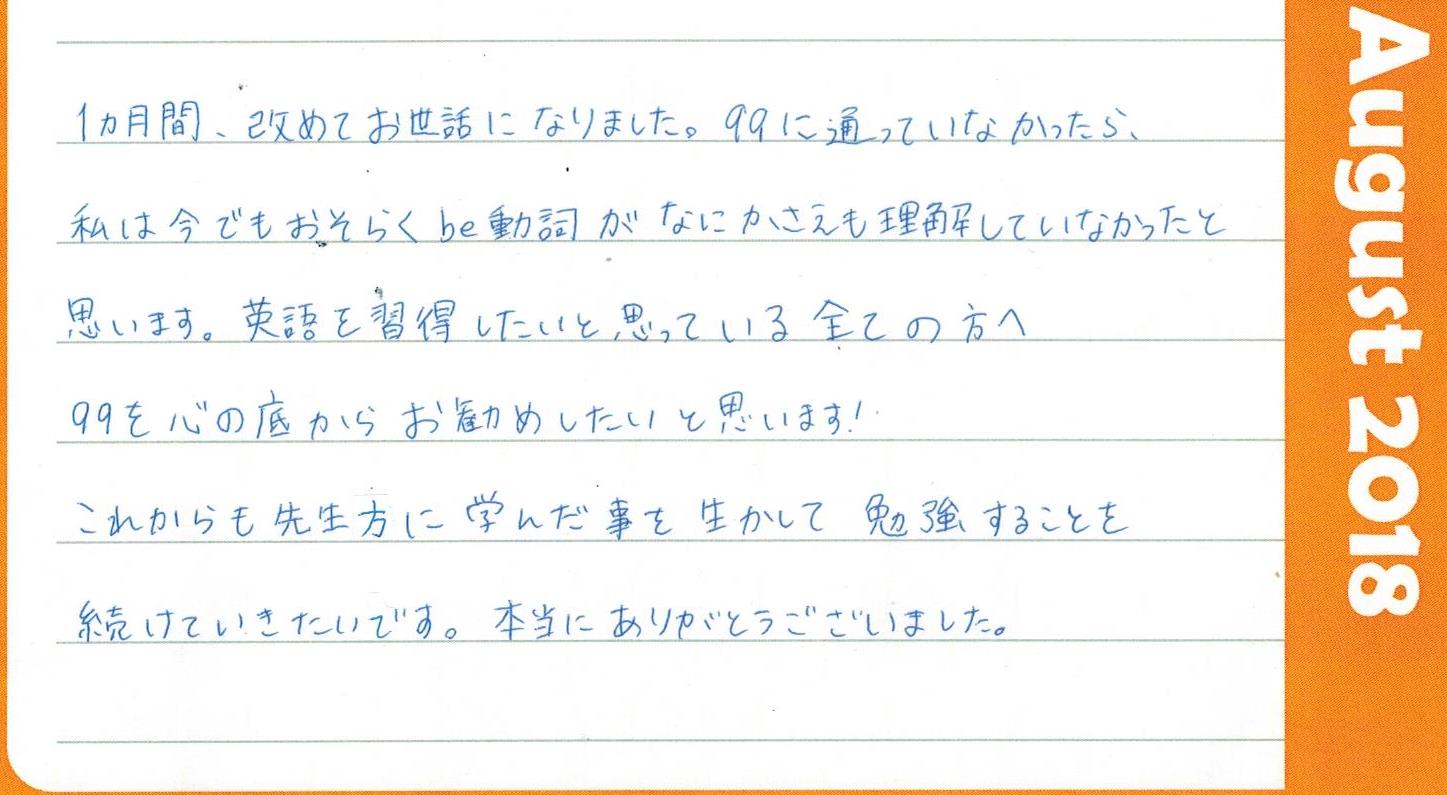 1ヵ月間、改めてお世話になりました。99に通っていなかったら、
私は今でもおそらくbe動詞がなにかさえも理解していなかったと
思います。英語を習得したいと思っている全ての方へ
99を心の底からお勧めしたいと思います!
これからも先生方に学んだ事を生かして勉強することを
続けていきたいです。本当にありがとうございました。
August 2018